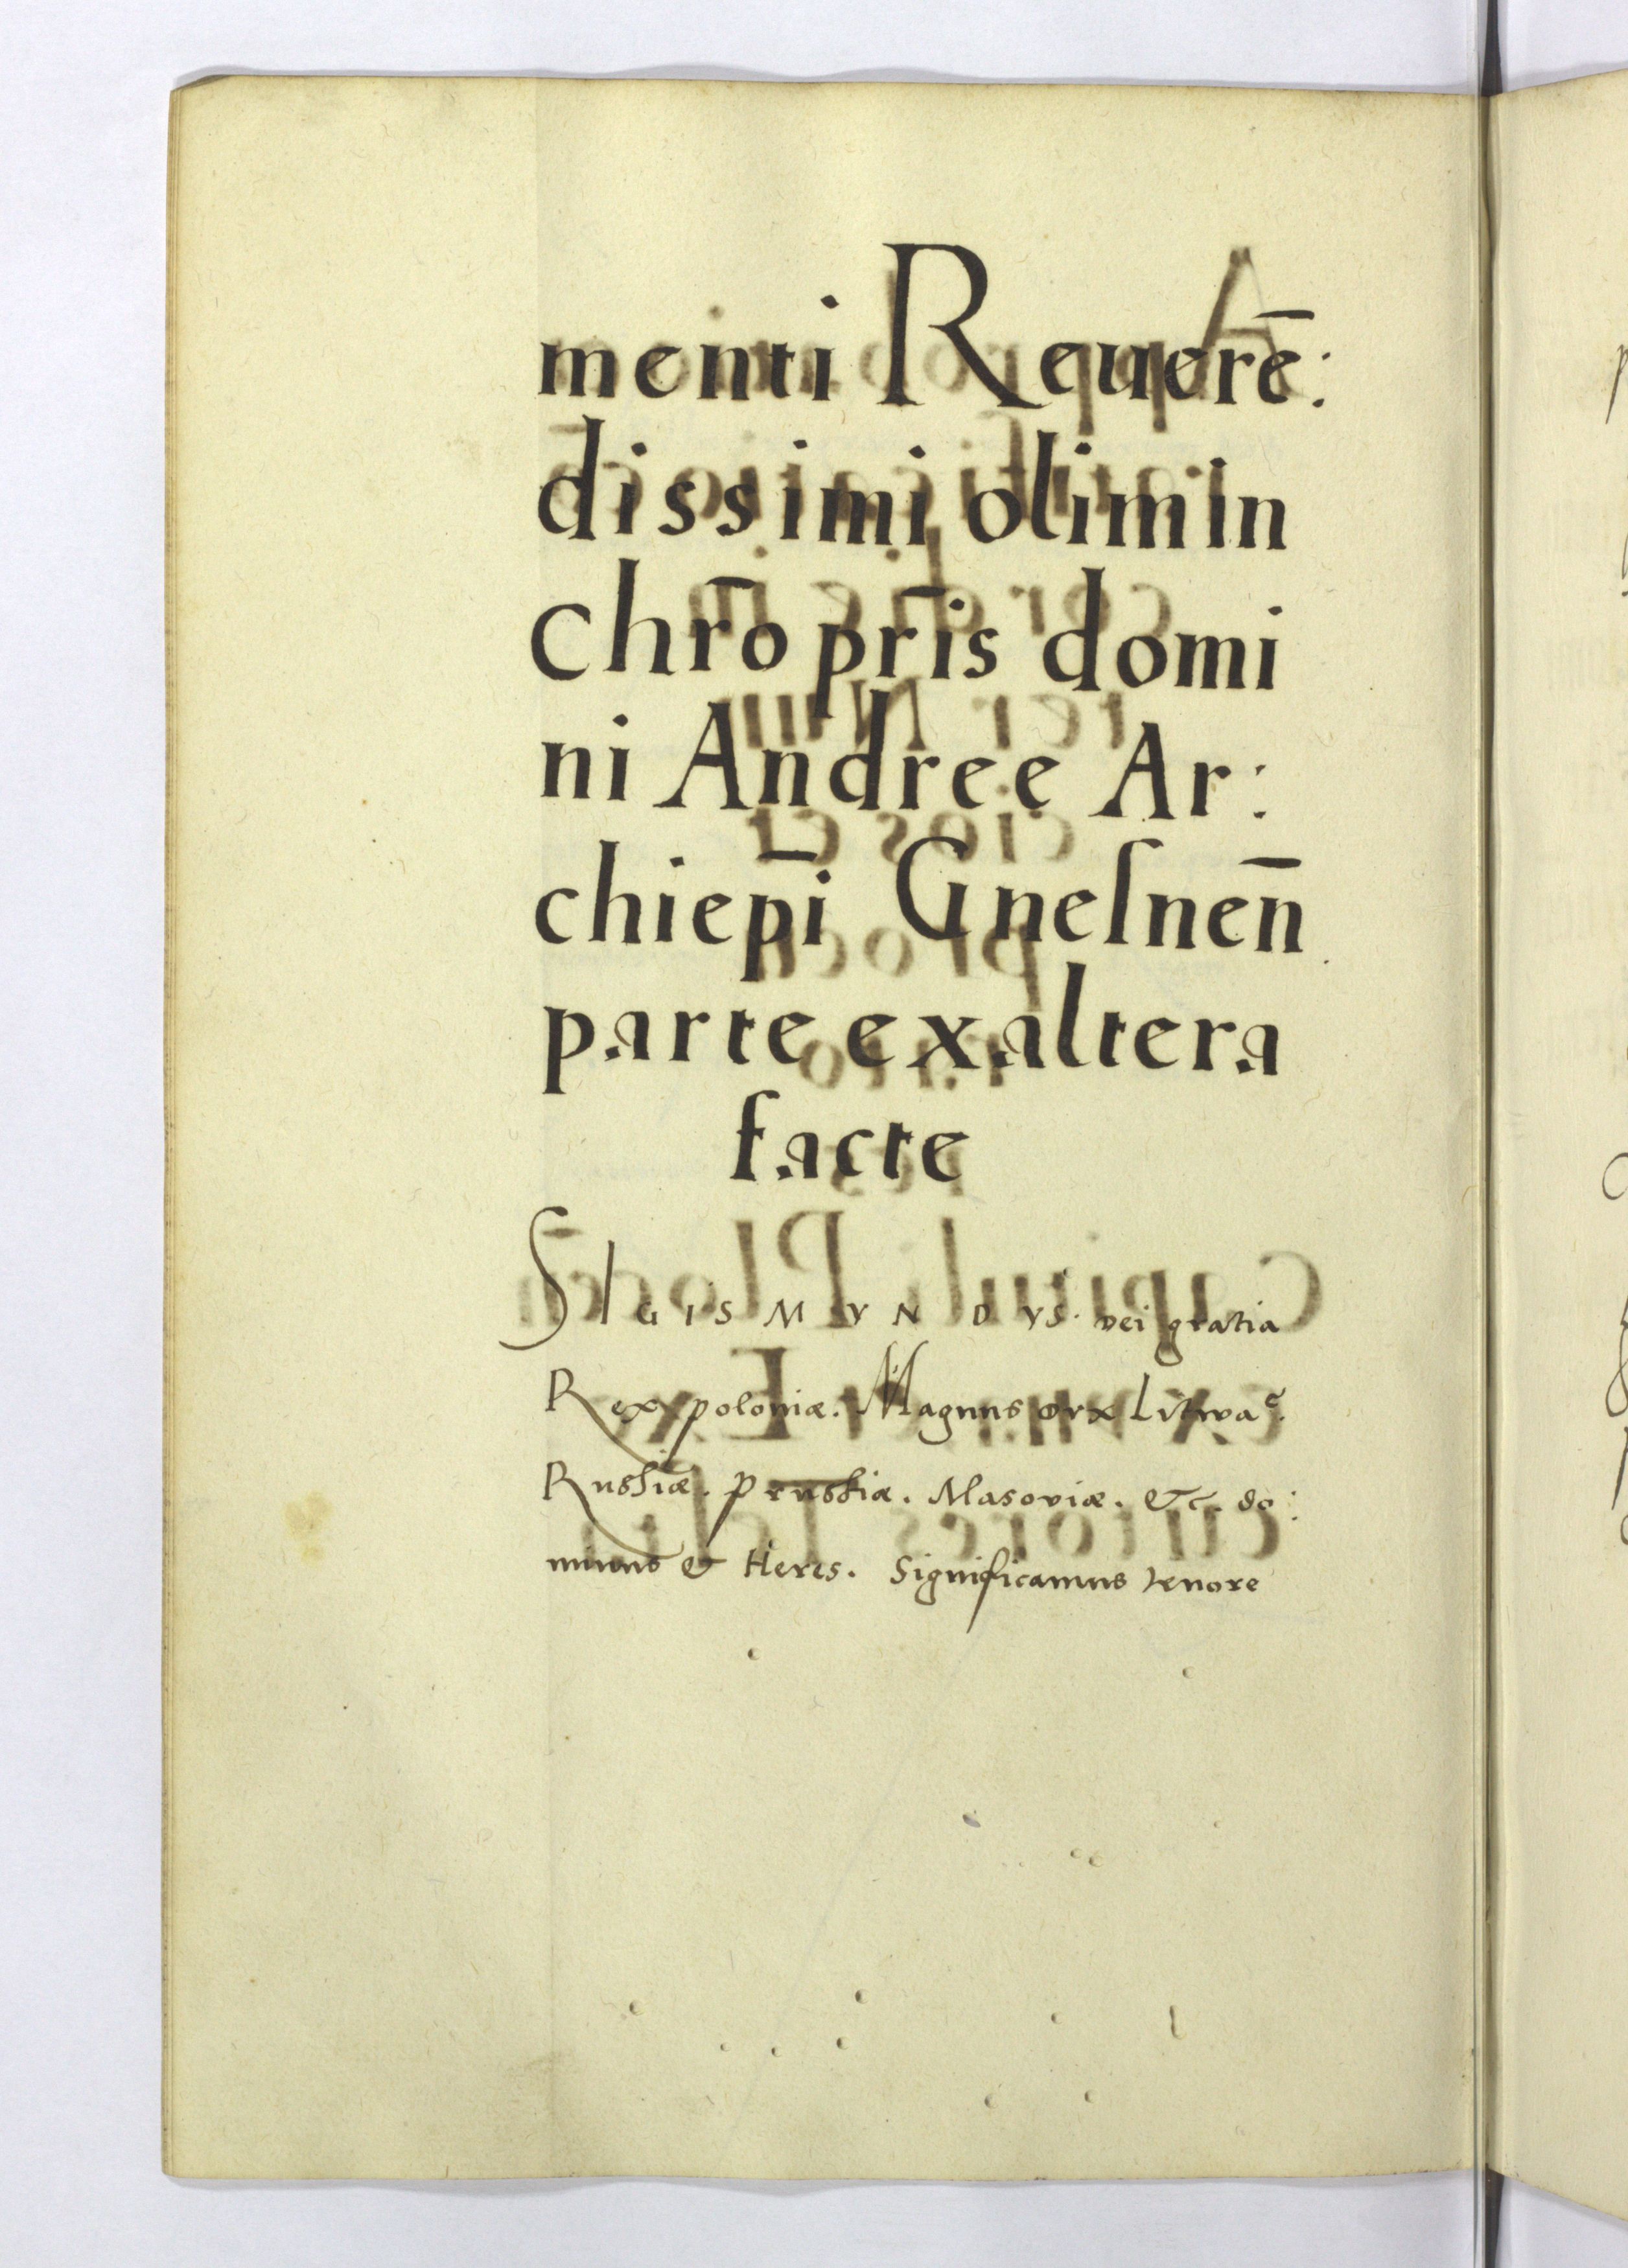 menti Reuerē:
dissimi olim in
chr̄o pr̄is domi
ni Andree Ar:
chiep̄i Gneſnen̄
parte ex altera
facte
SIGISMVNDVS. Dei gratia
Rex poloniæ. Magnus Dvx Litvvaᵉ.
Russiæ. Prussiæ. Masoviæ. &c. do:
minus & Heres. Significamus tenore